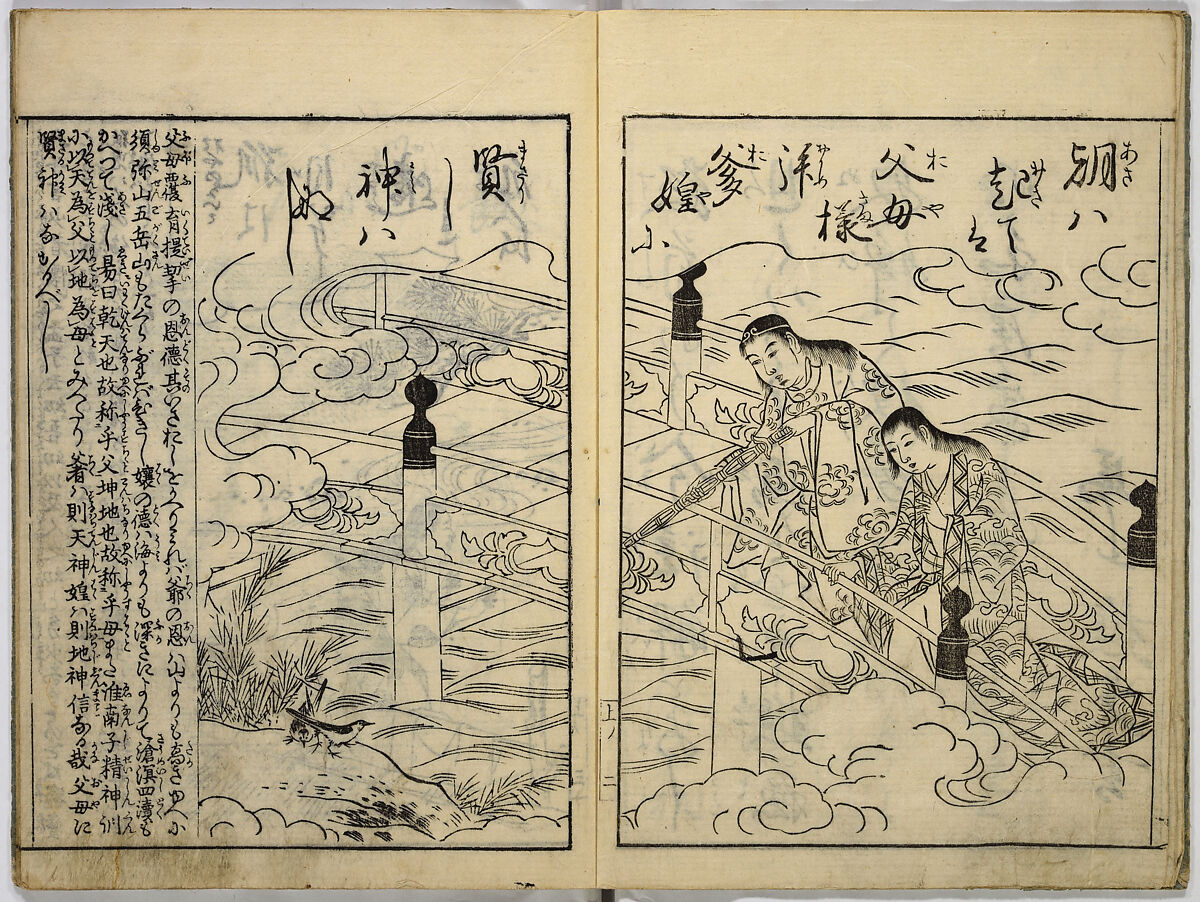 朝ハ
起て
父母
拝
様
爹
媓に
賢
し
神ハ
父母覆育提挈の恩徳其いさおしをかへりミれバ爺の恩ハ山よりも高きゆへに
須弥山五岳山もたくらぶれバひきし嬢の徳ハ海よりも深きによりて滄溟四瀆も
かへつて浅し易曰乾天也故称乎父坤地也故称乎母また淮南子精神訓
に以天為父以地為母とみへたり爹ハ則天神媓ハ則地神信なる哉父母に
賢神ハなかるべし
上ノ二